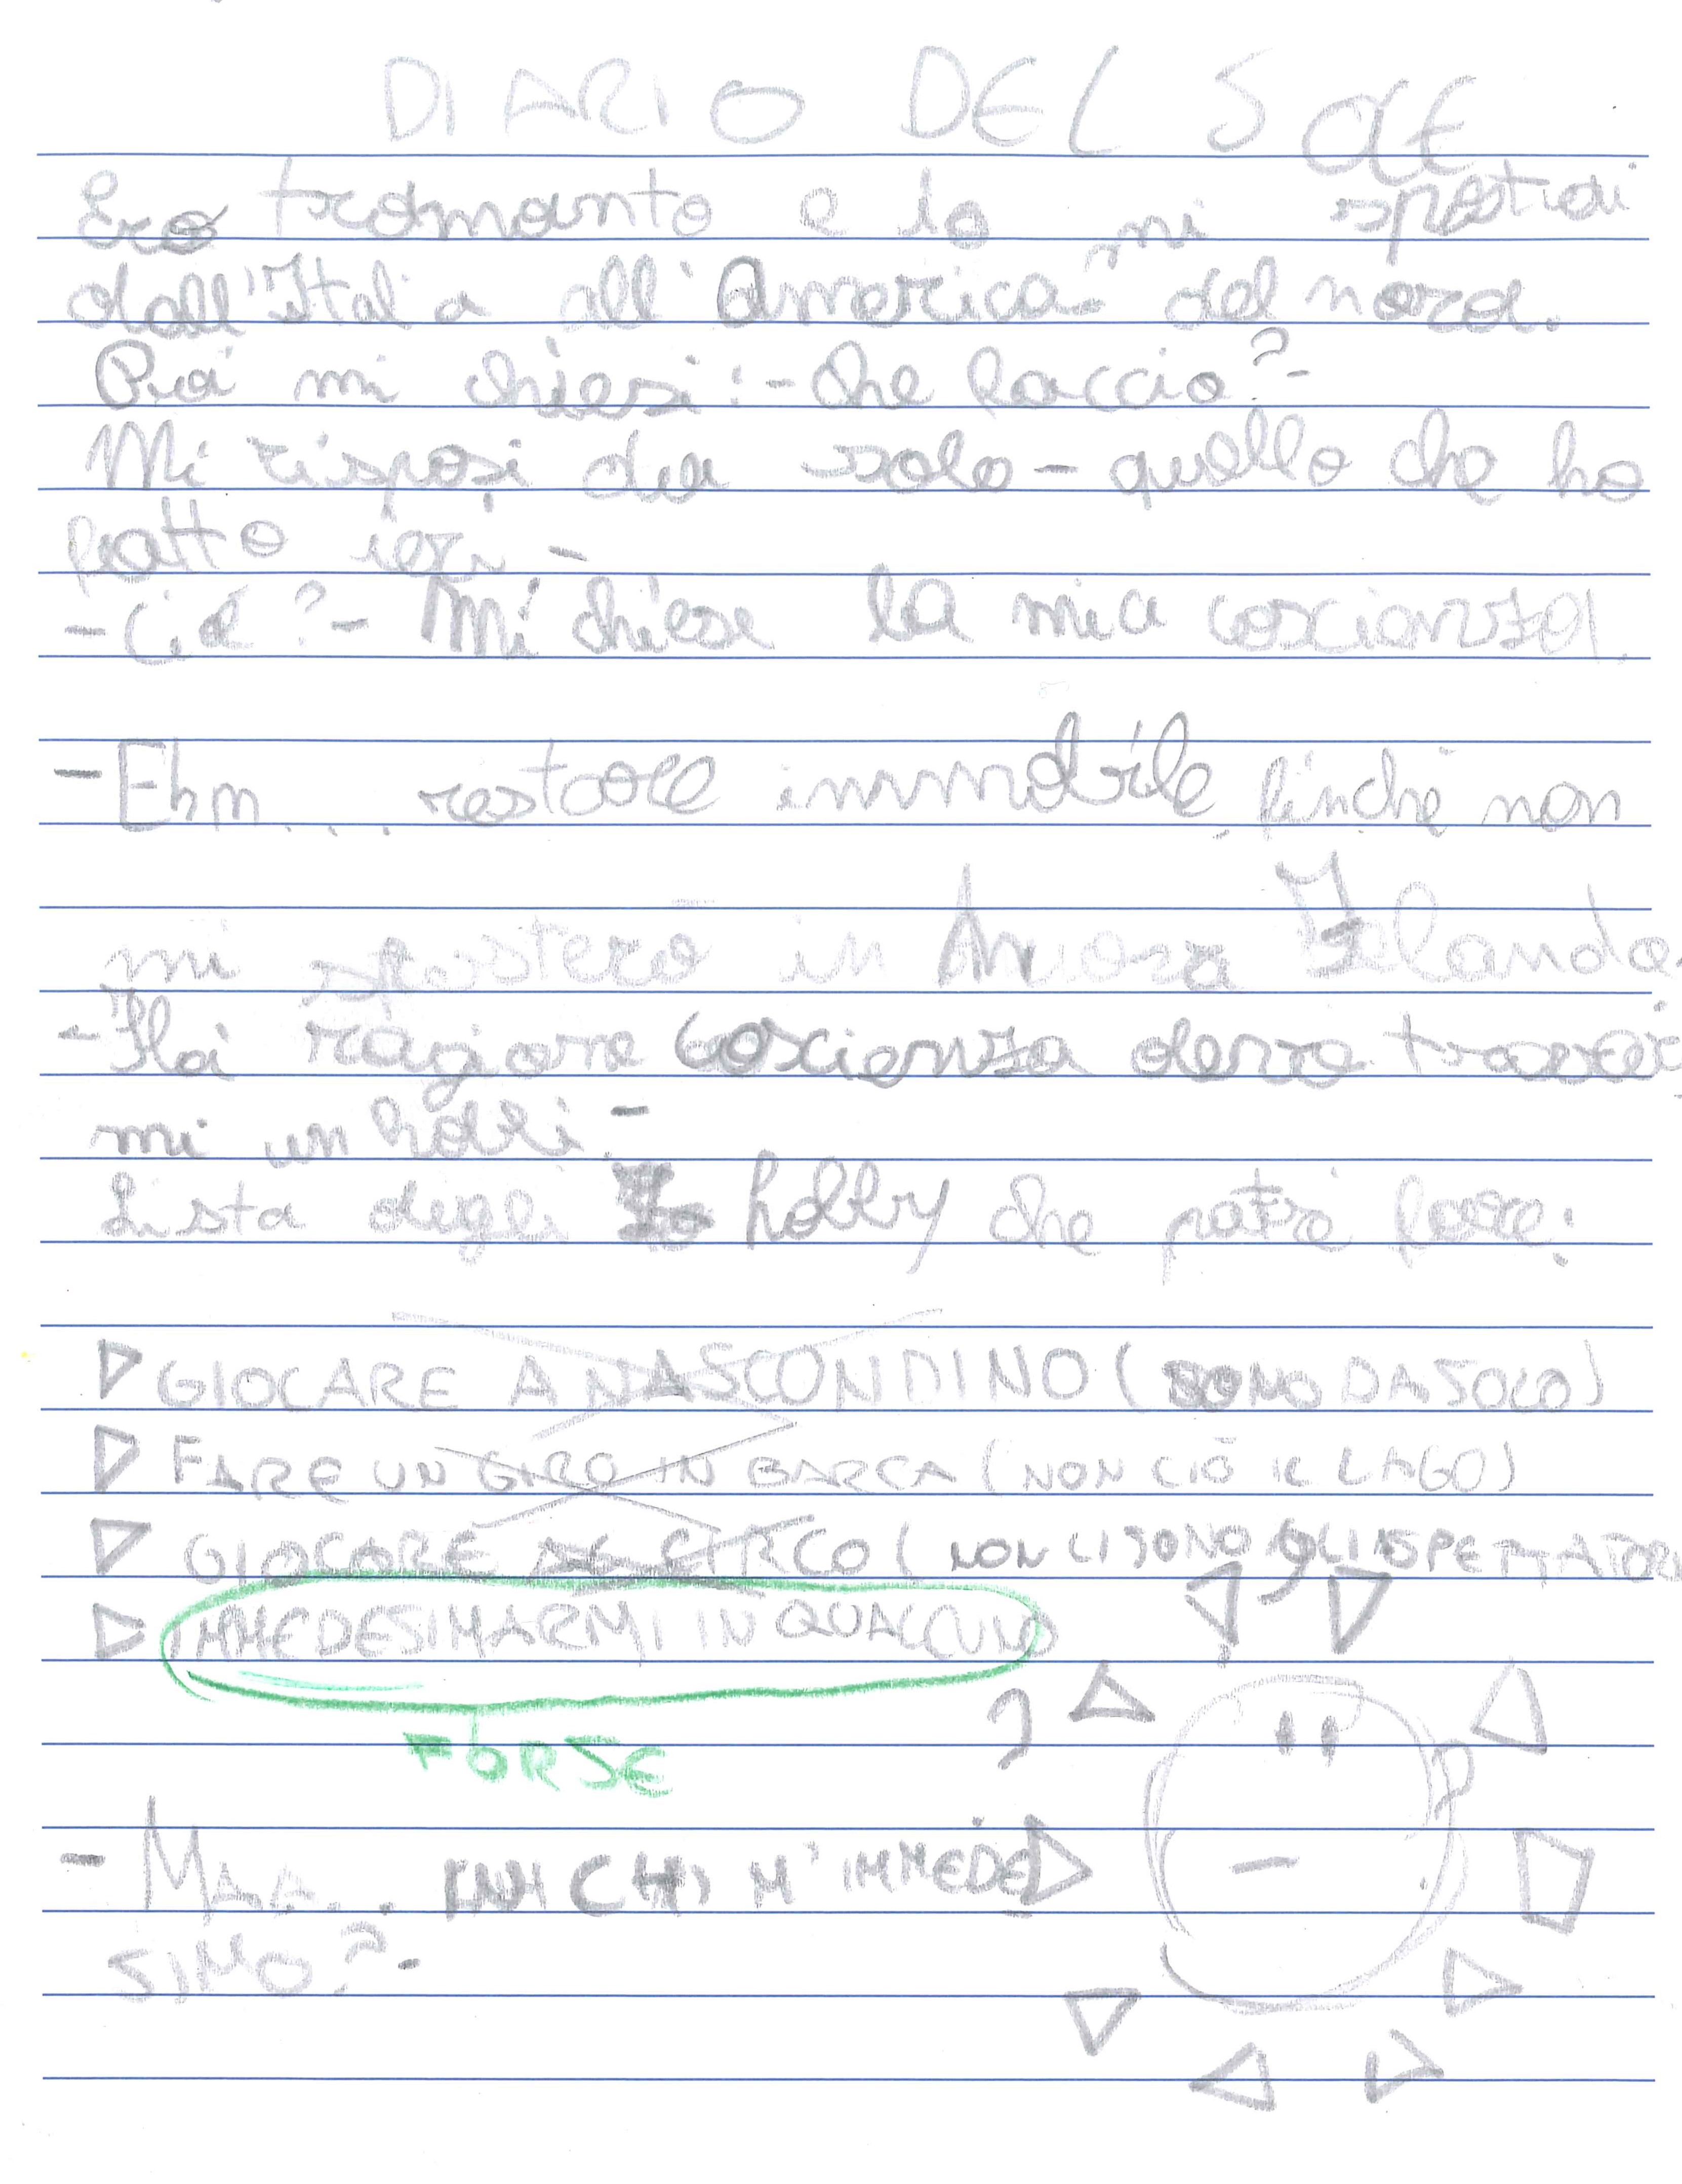 DIARIO DEL SOLE
Ero tramonto e io mi spostai
dall'Italia all'America del nord.
Poi mi chiesi: - Che faccio? -
Mi risposi da solo - quello che ho
fatto ieri -
- Cioè? - Mi chiese la mia coscienza.
- Ehm.... restare immobile finché non
mi sposterò in Nuova Zelanda.
- Hai ragione coscienza devo trovar
mi un hobbi -
Lista degli hobby che potrei fare:
GIOCARE A NASCONDINO (SONO DA SOLO)
FARE UN GIRO IN BARCA (NON CIÒ IL LAGO)
GIOCARE AL CIRCO (NON CI SONO GLI SPETTATORI
IMMEDESIMARMI IN QUALCUNO
FORSE
- MAA... IN CHI M'IMMEDE
SIMO? -